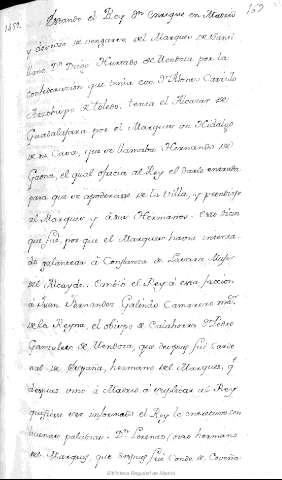 159
1459. Estando el Rey Dn Enrique en Madrid
y deseoso de vengarse del Marques de Santi
llana Dn Diego Hurtado de Mendoza por la
confederacion que tenia con Dn Alonso Carrillo
Arzobispo de Toledo, tenia el Alcazar de
Guadalaxara por el Marques un Hidalgo
de su Casa, que se llamaba Hernando de
Gaona, el qual ofrecia al Rey el darle entrada
para que se apoderase de la Villa, y prendiese
al Marques y á sus Hermanos. Esto dicen
que fué, por que el Marques havia intenta
do galantear á Constanza de Lasarte Muger
del Alcayde. Embió el Rey á esta faccion
á Juan Fernandez Galindo Camarero mor.
de la Reyna, el obispo de Calahorra Dn Pedro
Gonzalez de Mendoza, que despues fué Carde
nal de España, hermano del Marques, q.
despues vino á Madrid á suplicar al Rey
quisiese ser informado el Rey le entretuvo con
buenas palabras. Dn Lorenzo, otro hermano
del Marques, que despues fué Conde de Coruña
Biblioteca Regional de Madrid